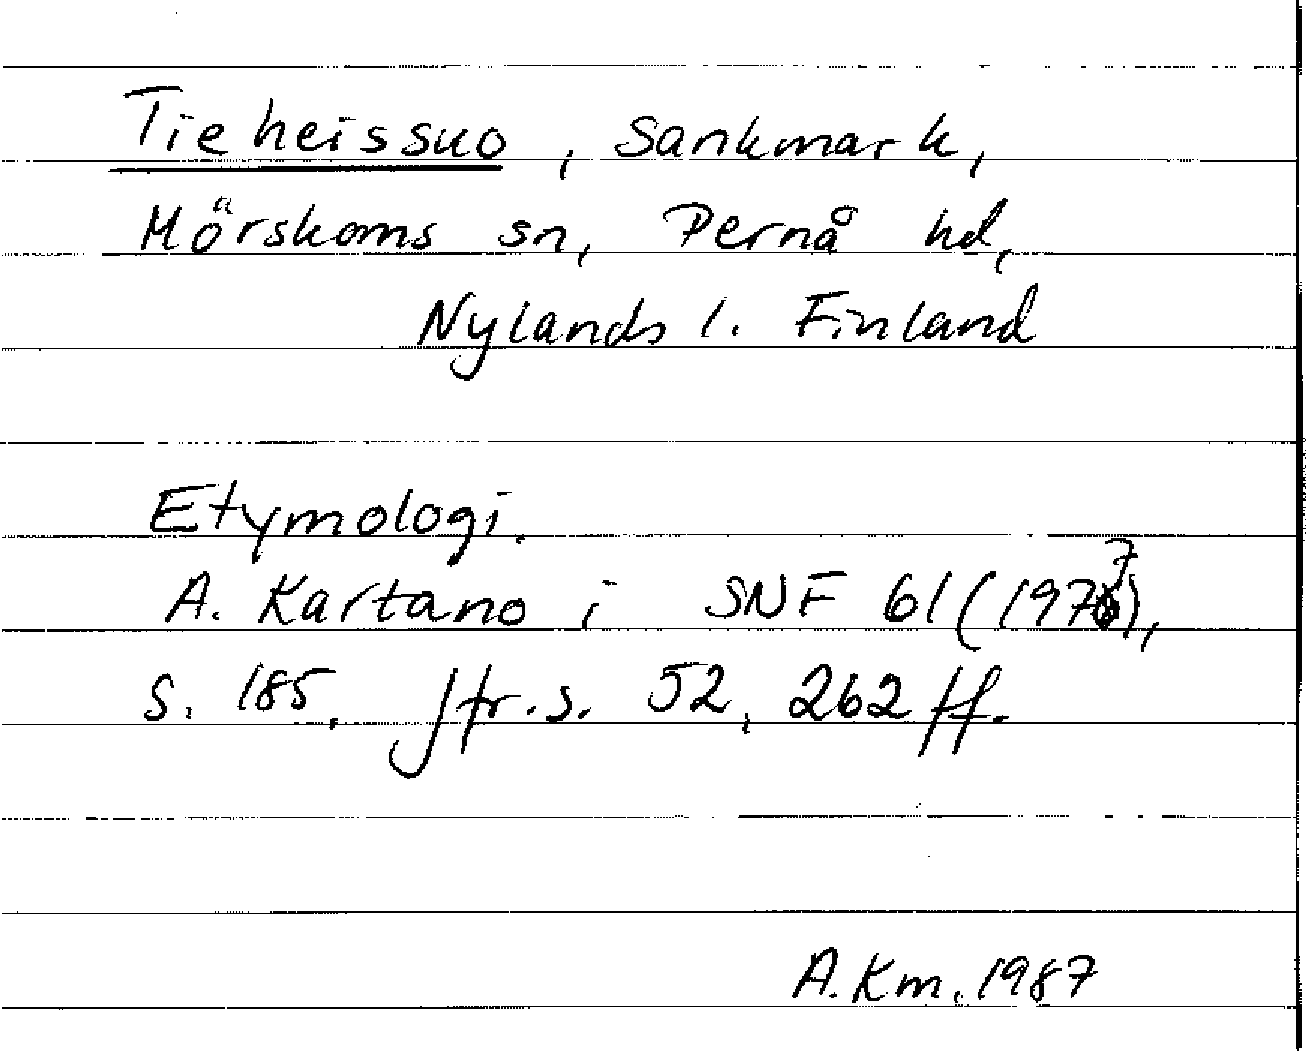 Tieheissuo, sankmark,
Mörskoms sn, Pernå hd,
Nylands l. Finland
Etymologi.
A. Kartano i SNF 61 (1977),
s. 185. Jfr. s. 52, 262 ff.
A.Km. 1987